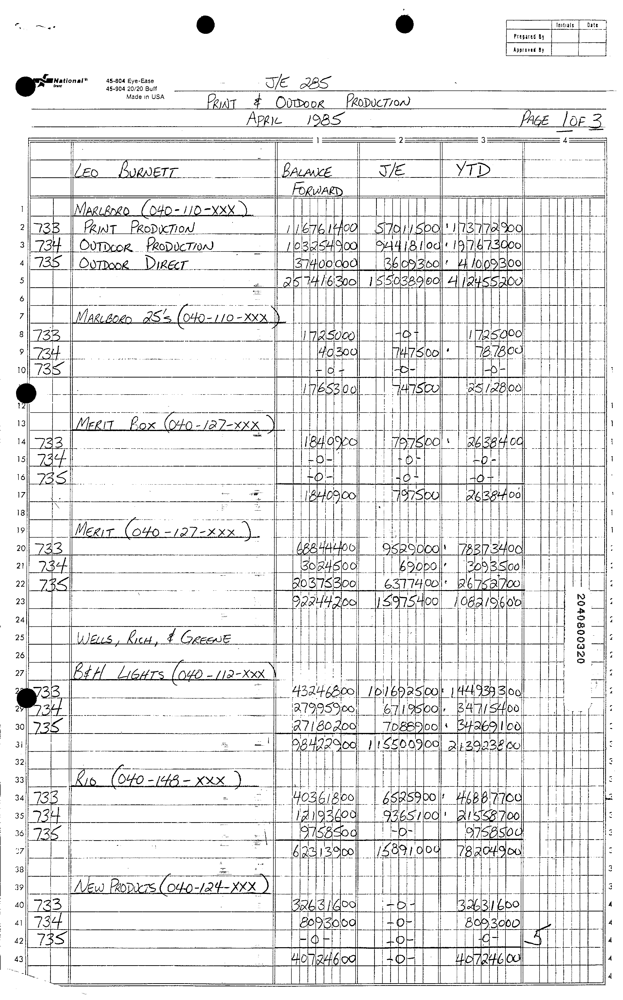 Initials Date
Prepared By
Approved By
National™ 45-604 Eye-Ease
45-904 20/20 Buff
Made in USA
J/E 285
PRINT & OUTDOOR PRODUCTION
APRIL 1985 PAGE 1 OF 3
1 2 3 4
LEO BURNETT BALANCE FORWARD J/E YTD
1 MARLBORO (040-110-XXX)
2 733 PRINT PRODUCTION 116761400 57011500 173772900
3 734 OUTDOOR PRODUCTION 103254900 94418100 197673000
4 735 OUTDOOR DIRECT 37400000 3609300 41009300
5 257416300 155038900 412455200
6
7 MARLBORO 25's (040-110-XXX)
8 733 1725000 -0- 1725000
9 734 40300 747500 787800
10 735 -0- -0- -0-
1765300 747500 2512800
12
13 MERIT BOX (040-127-XXX)
14 733 1840900 797500 2638400
15 734 -0- -0- -0-
16 735 -0- -0- -0-
17 1840900 797500 2638400
18
19 MERIT (040-127-XXX)
20 733 68844400 9529000 78373400
21 734 3024500 69000 3093500
22 735 20375300 6377400 26752700
23 92244200 15975400 108219600
24
25 WELLS, RICH, & GREENE
26
27 B&H LIGHTS (040-112-XXX)
28 733 43246800 101692500 144939300
29 734 27995900 6719500 34715400
30 735 27180200 7088900 34269100
31 98422900 115500900 213923800
32
33 RIO (040-148-XXX)
34 733 40361800 6525900 46887700
35 734 12193600 9365100 21558700
36 735 9758500 -0- 9758500
37 62313900 15891000 78204900
38
39 NEW PRODUCTS (040-124-XXX)
40 733 32631600 -0- 32631600
41 734 8093000 -0- 8093000
42 735 -0- -0- -0- 5
43 40724600 -0- 40724600
2040800320